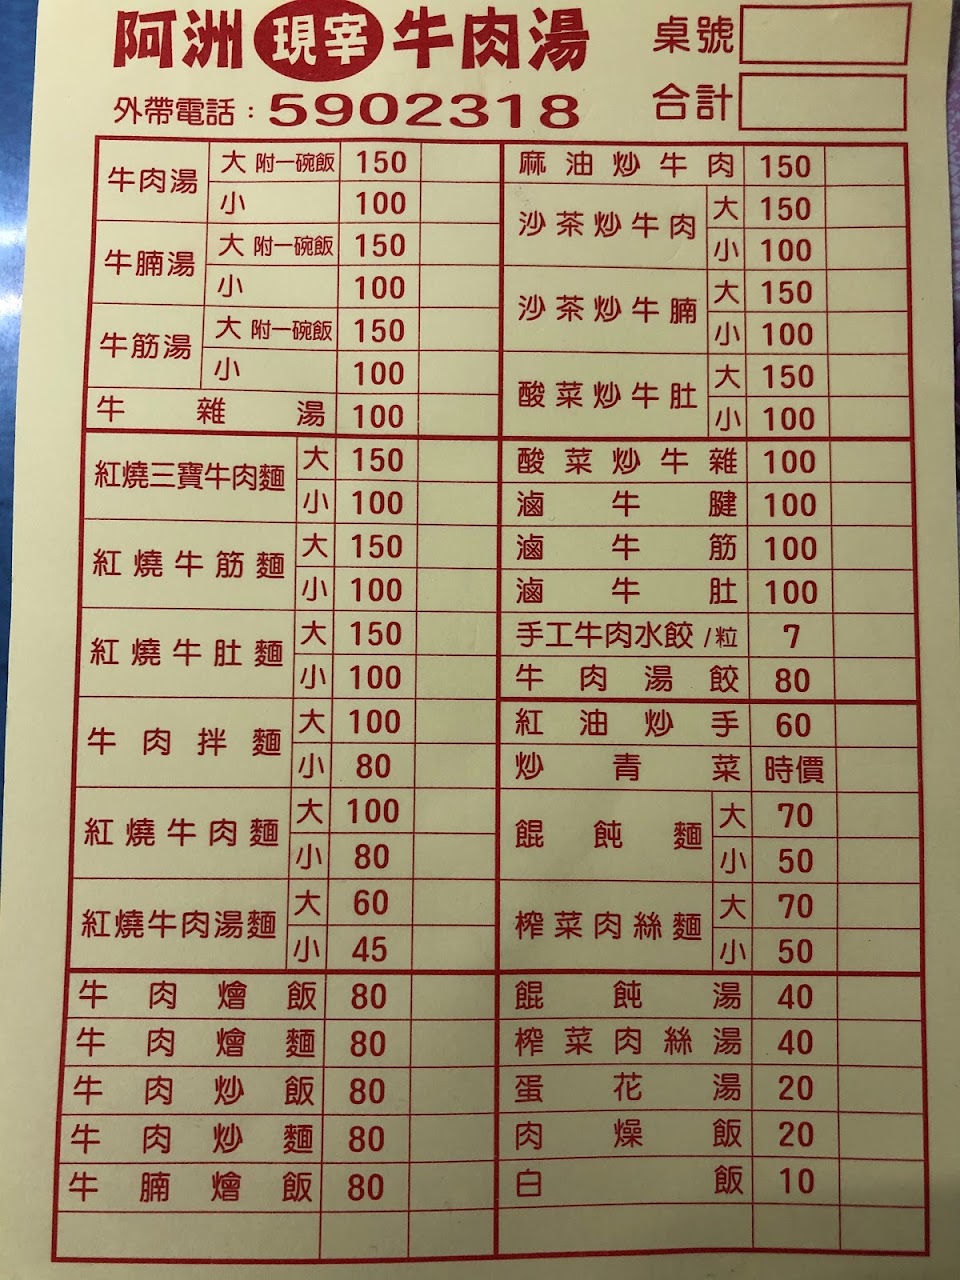 阿洲 現宰 牛肉湯
桌號
外帶電話：5902318
合計
牛肉湯 大 附一碗飯 150
小 100
牛腩湯 大 附一碗飯 150
小 100
牛筋湯 大 附一碗飯 150
小 100
牛雜湯 100
紅燒三寶牛肉麵 大 150
小 100
紅燒牛筋麵 大 150
小 100
紅燒牛肚麵 大 150
小 100
牛肉拌麵 大 100
小 80
紅燒牛肉麵 大 100
小 80
紅燒牛肉湯麵 大 60
小 45
牛肉燴飯 80
牛肉燴麵 80
牛肉炒飯 80
牛肉炒麵 80
牛腩燴飯 80
麻油炒牛肉 150
沙茶炒牛肉 大 150
小 100
沙茶炒牛腩 大 150
小 100
酸菜炒牛肚 大 150
小 100
酸菜炒牛雜 100
滷牛腱 100
滷牛筋 100
滷牛肚 100
手工牛肉水餃/粒 7
牛肉湯餃 80
紅油炒手 60
炒青菜 時價
餛飩麵 大 70
小 50
榨菜肉絲麵 大 70
小 50
餛飩湯 40
榨菜肉絲湯 40
蛋花湯 20
肉燥飯 20
白飯 10